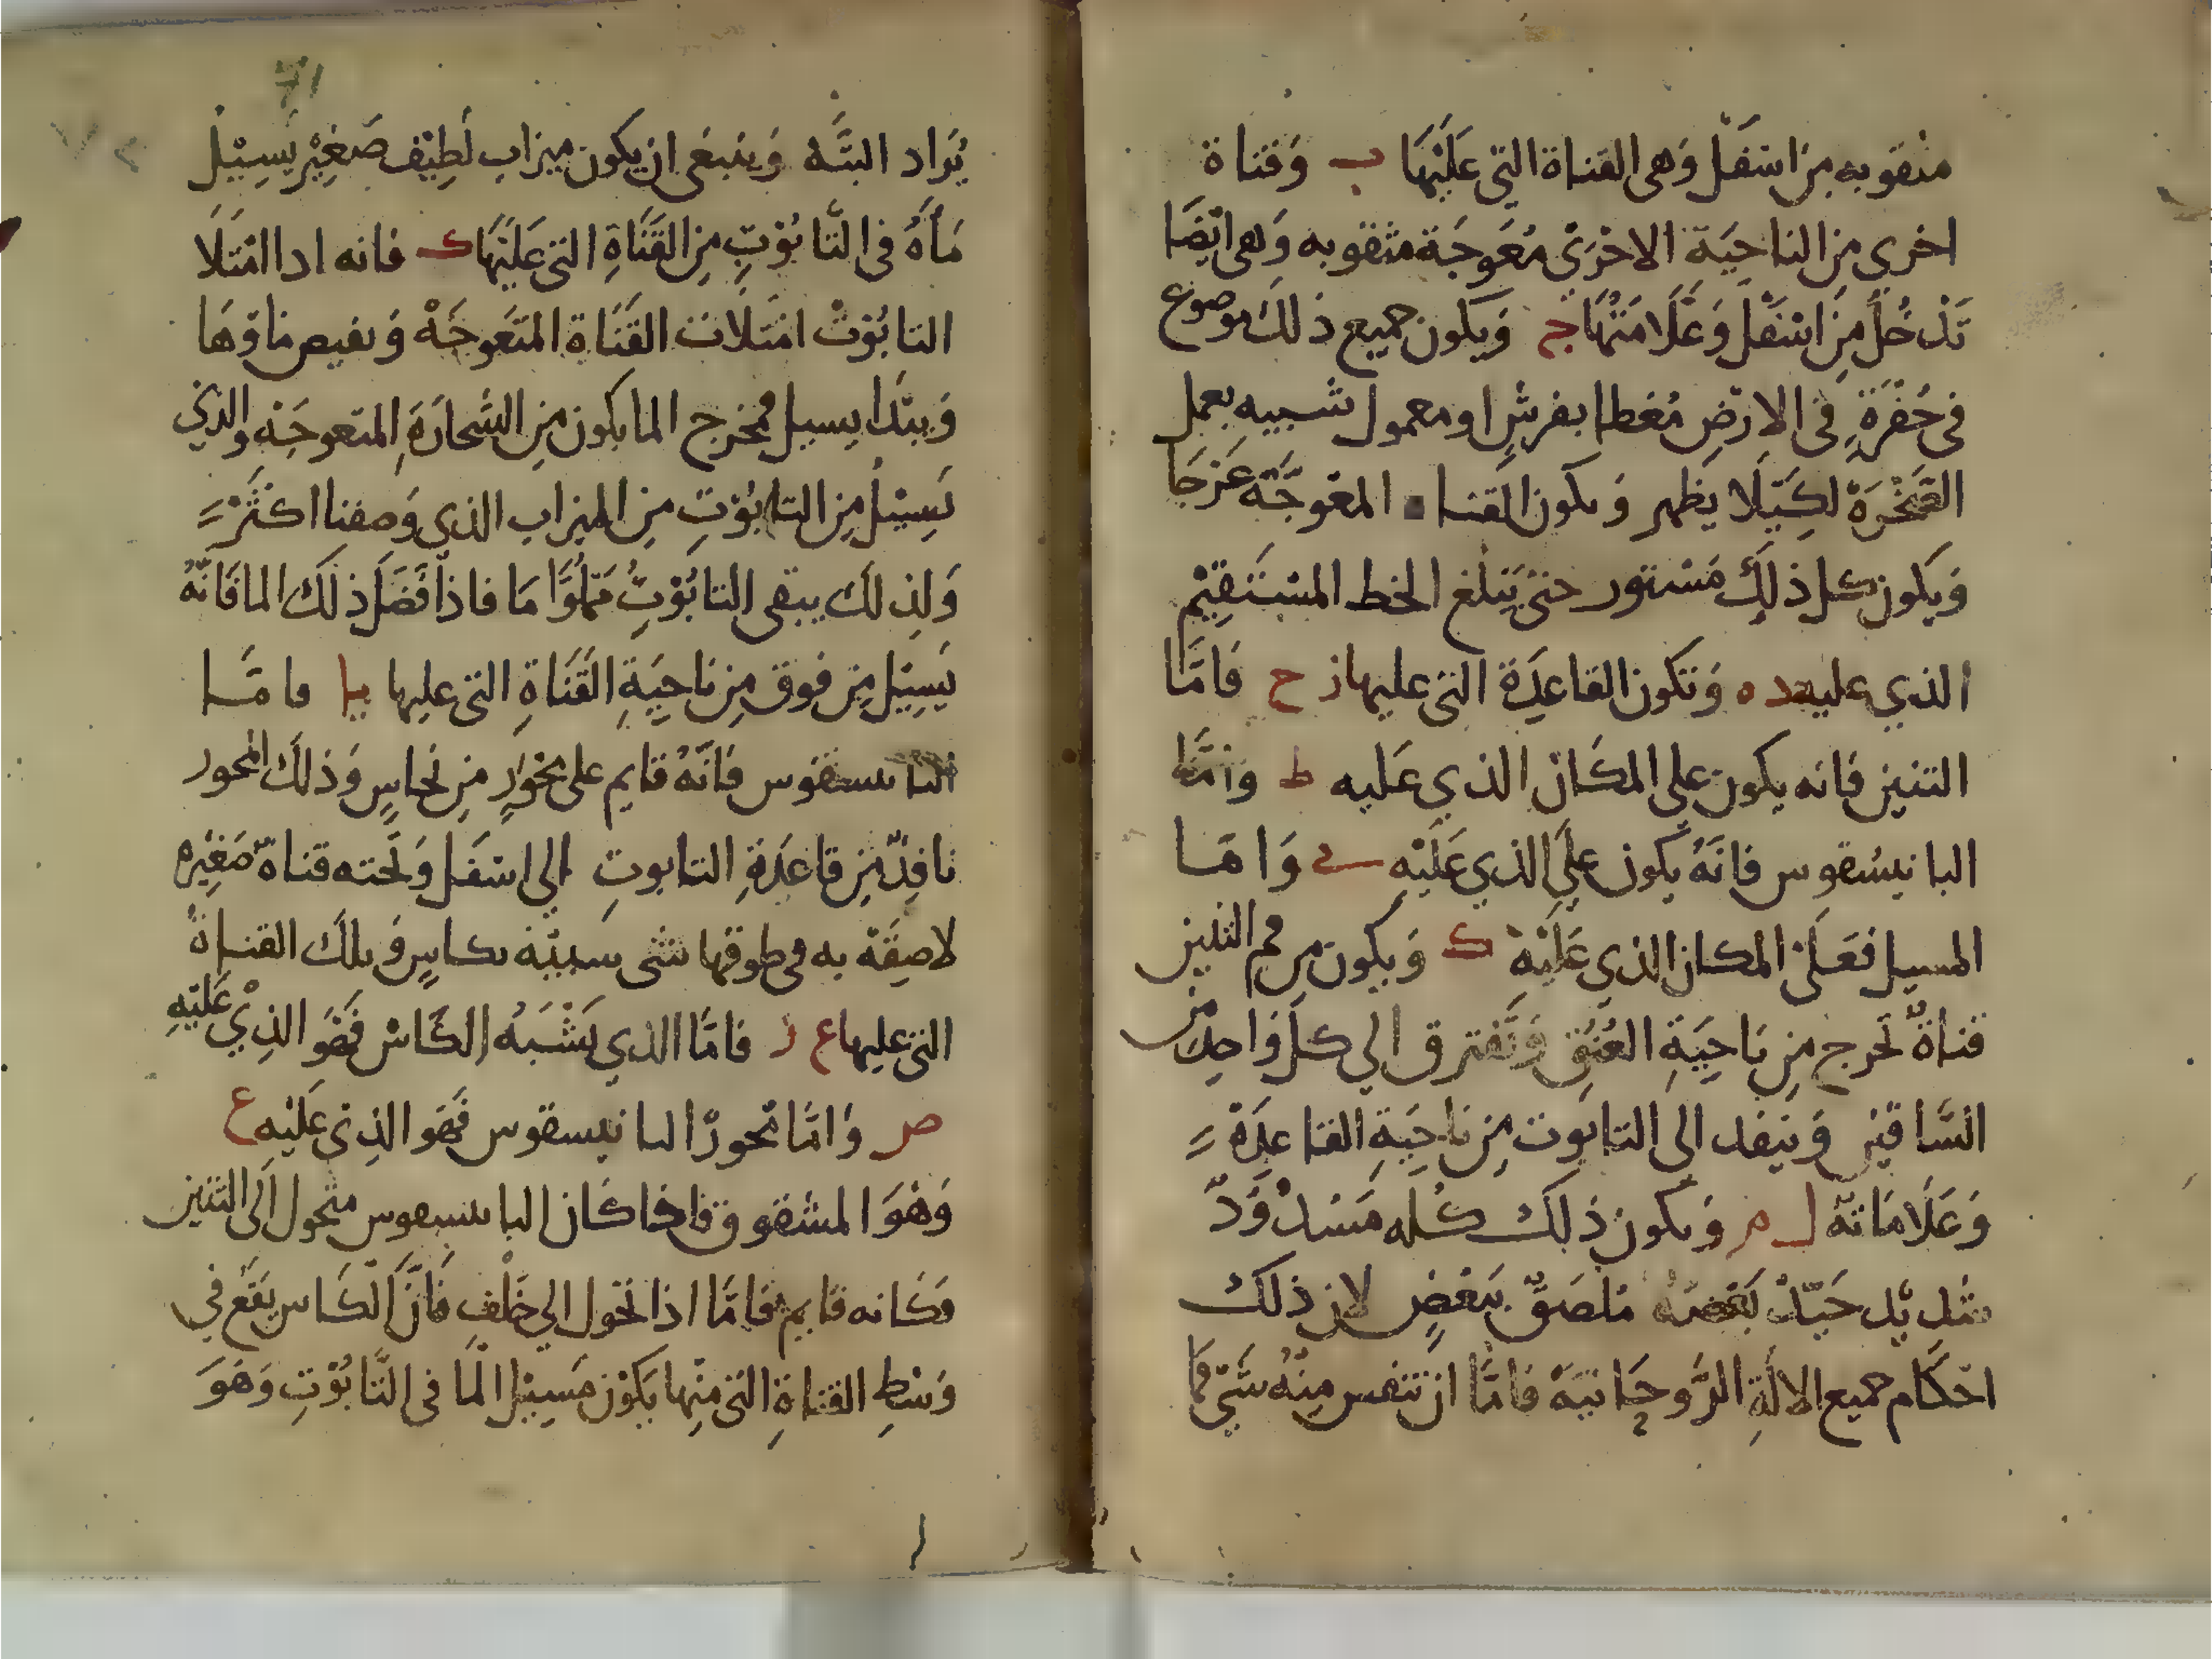 مثقوبه من اسفل وهى القناة التي عليها ب وقناة
اخري من الناحية الاخرى معوجة مثقوبه وهى ايضا
تدخل من اسفل وعلامتها ج ويكون جميع ذلك موضوع
فى حفرة فى الارض مغطا بفرش او معمول شبيه بعمل
الصخرة لكيلا يظهر وىكون القنا المعوجة عرجا
ويكون كل ذلك مستور حتى يبلغ الخط المستقيم
الذي عليه ده وتكون القاعدة التى عليها ز ح فاما
التنين فانه يكون على المكان الذي عليه ط واما
البانيسقوس فانه يكون على الذي عليه ى واما
المسيل فعلى المكان الذي عليه ك ويكون من فم التنين
قناة تخرج من ناحية العنق وتفترق الي كل واحد من
الساقين وينفد الى التابوت من ناحية القاعدة
وعلاماته ل م وىكون ذلك كله مسدود
مثل بل جيد بعضه ملصق ببعض لان ذلك
احكام جميع الالة الروحانية فاما ان تتنفس منه شي فما
71
يراد البتة وينبغى ان يكون ميزاب لطيف صغير يسيل
مأه فى التابوت من القناة التى عليها ك فانه ادا امتلا
التابوت امتلات القناة المتعوجة ويفيض ماوها
ويبتدا يسيل مخرج الما يكون من السحارة المتعوجه والذي
يسيل من التابوت من الميزاب الذي وصفنا اكثر
ولذلك يبقى التابوت مملوا ما فاذا فضل ذلك الما فانه
يسيل من فوق من ناحية القناة التى عليها يا فاما
البانيسقوس فانه قايم على محور من نحاس وذلك المحور
نافد من قاعدة التابوت الى اسفل وتحته قناة صغيره
لاصقة به فى طوقها شى شبيه بكاس وتلك القناة
التى عليها ع ز فاما الذي يشبه الكاس فهو الذي عليه
ص واما محور البانيسقوس فهو الذي عليه ع
وهو المشقوق فاذا كان البانيسقوس متحول الى التنين
فكانه قايم فاما اذا تحول الي خلف فان الكاس يقع في
وسط القناة التى منها يكون مسيل الما فى التابوت وهو